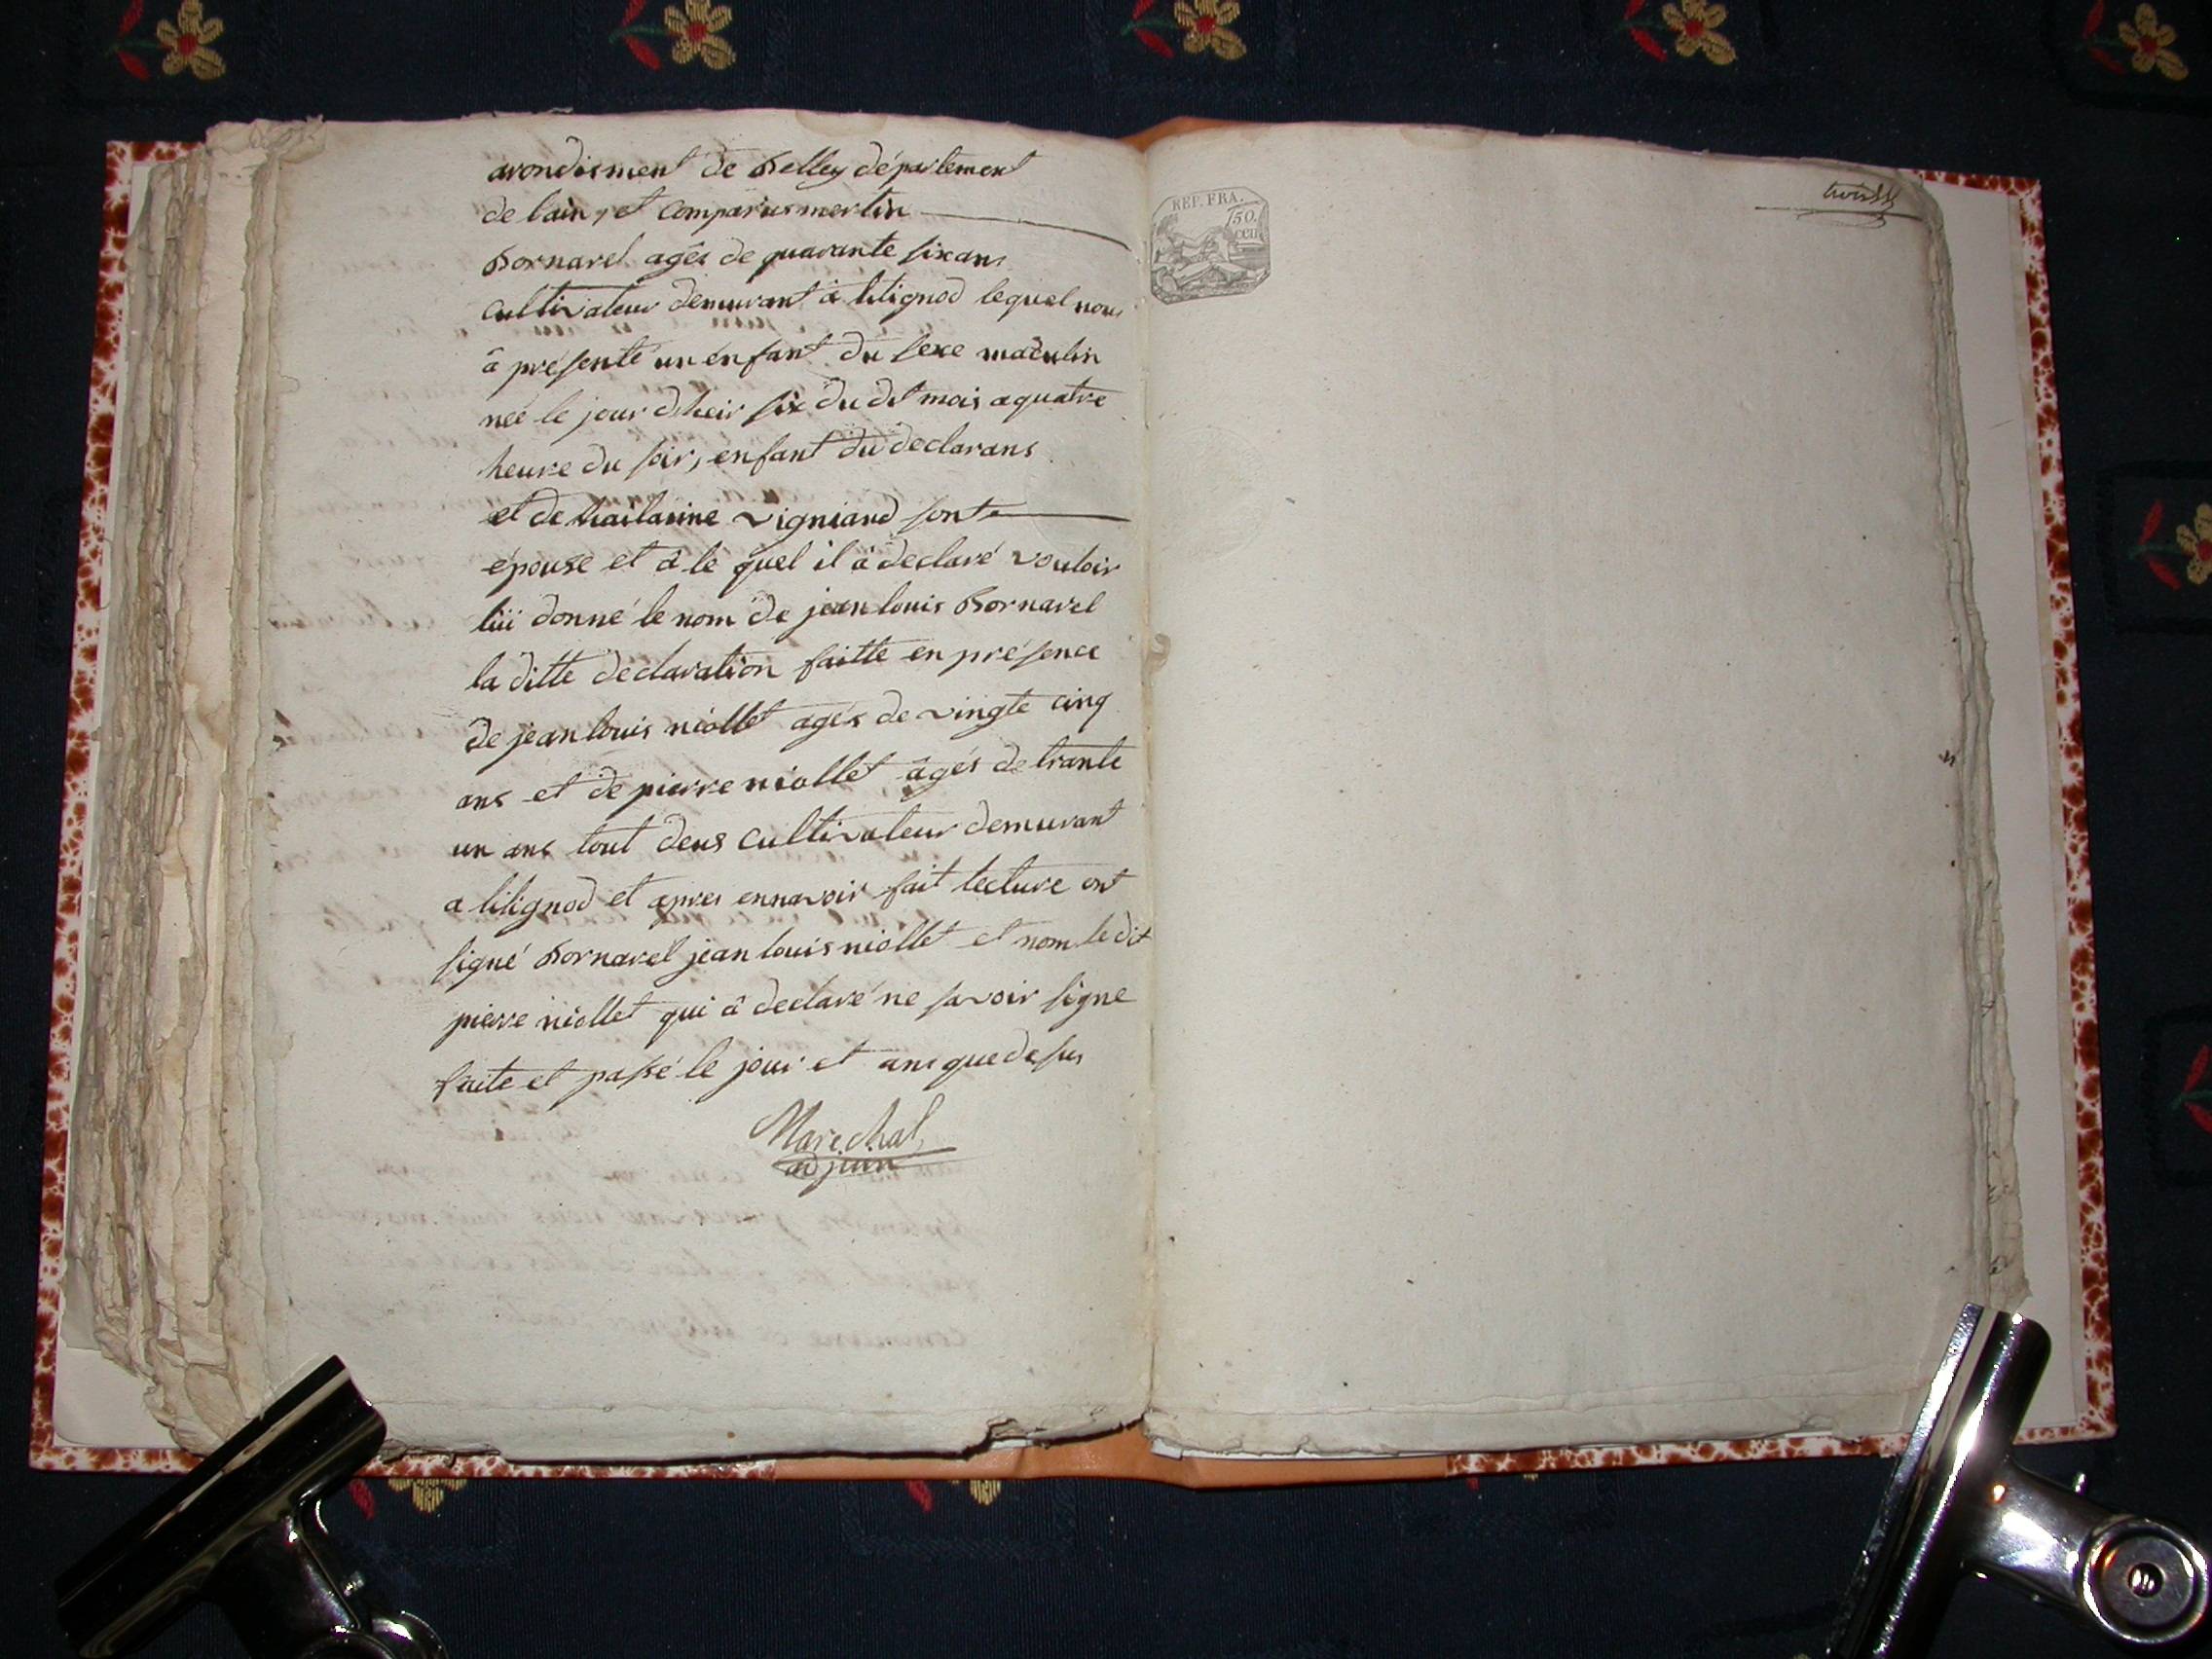 arondisment de Belley département
de lain, et comparus mertin
Bornarel agés de quarante six ans
cultivateur demurant à lilignod lequel nous
à présenté un énfant du sexe maculin
neé le jour dheir six du dit mois a quatre
heure du soir, enfant du declarans
et de vigniand sont
épouse et à le quel il à declaré vouloir
lüi donné le nom de jean louis Bornarel
la ditte declaration faitte en présence
de jean louis niollet agés de vingte cinq
ans et de pierre niollet âgés de trante
un ans tout deus cultivateur demurant
a lilignod et apres ennavoir fait lecture ont
signé Bornarel jean louis niollet et nom le dit
pierre niollet qui à declaré ne savoir signe
faite et passé le jour et ans que desus
Marechal
adjoin
REP. FRA.
50.
cen